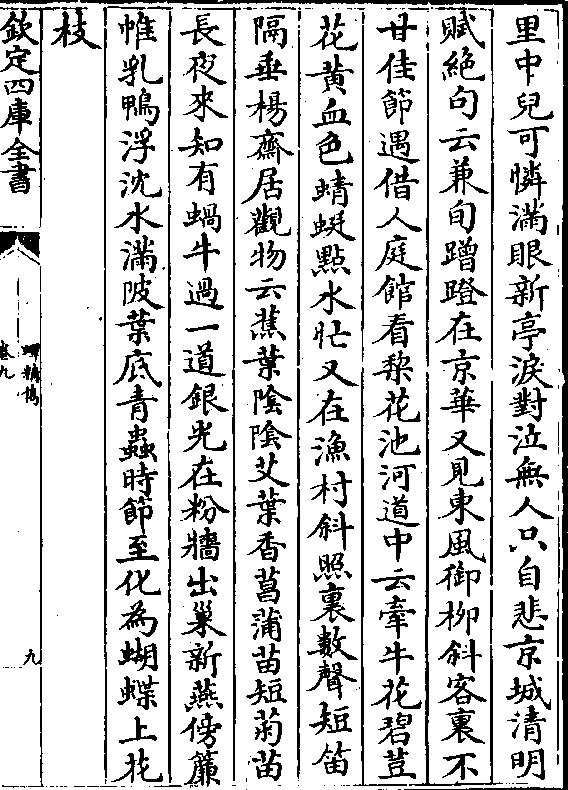 里中兒可憐滿眼新亭淚對泣無人只自悲京城清明
賦絶句云兼旬蹭蹬在京華又見東風御栁斜客裏不
甘佳節遇借人庭館看棃花池河道中云牽牛花碧荳
花黄血色蜻蜓點水忙又在漁村斜照裏數聲短笛
隔垂楊齋居觀物云蕉葉陰陰艾葉香菖蒲苗短菊苗
長夜來知有蝸牛過一道銀光在粉牆出巢新燕傍簾
帷乳鴨浮沈水滿陂葉底青蟲時節至化為蝴蝶上花
枝
欽定四庫全書
卷九
九